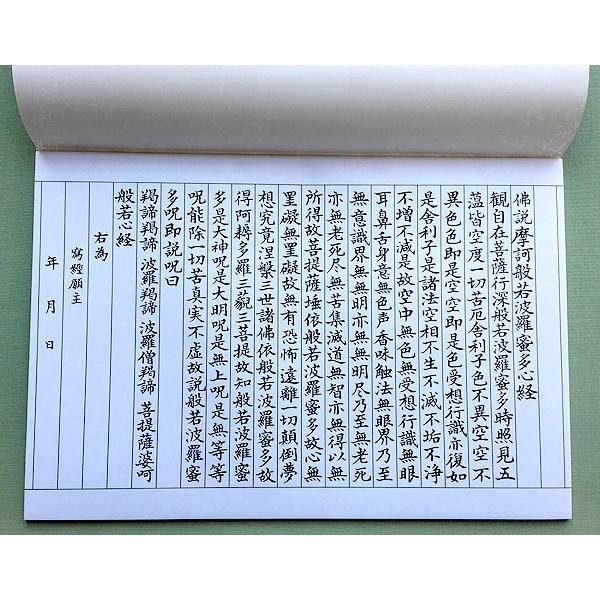 佛説摩訶般若波羅蜜多心経
観自在菩薩行深般若波羅蜜多時照見五
蘊皆空度一切苦厄舎利子色不異空空不
異色色即是空空即是色受想行識亦復如
是舎利子是諸法空相不生不滅不垢不浄
不増不減是故空中無色無受想行識無眼
耳鼻舌身意無色声香味触法無眼界乃至
無意識界無無明亦無無明尽乃至無老死
亦無老死尽無苦集滅道無智亦無得以無
所得故菩提薩埵依般若波羅蜜多故心無
罣礙無罣礙故無有恐怖遠離一切顛倒夢
想究竟涅槃三世諸佛依般若波羅蜜多故
得阿耨多羅三藐三菩提故知般若波羅蜜
多是大神呪是大明呪是無上呪是無等等
呪能除一切苦真実不虚故説般若波羅蜜
多呪即説呪曰
羯諦羯諦 波羅羯諦 波羅僧羯諦 菩提薩婆呵
般若心経
右為
寫経願主
年 月 日